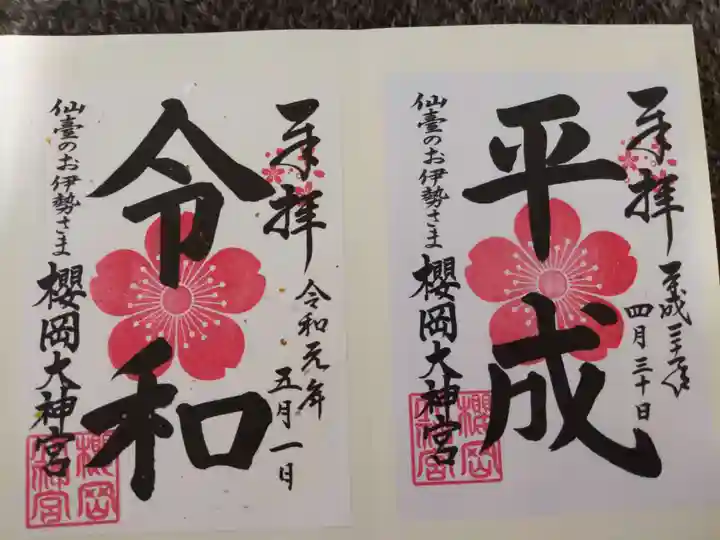 奉拝
平成三十一年
四月三十日
平成
仙臺のお伊勢さま
櫻岡大神宮
櫻岡
大神宮
奉拝
令和元年
五月一日
令和
仙臺のお伊勢さま
櫻岡大神宮
櫻岡
大神宮